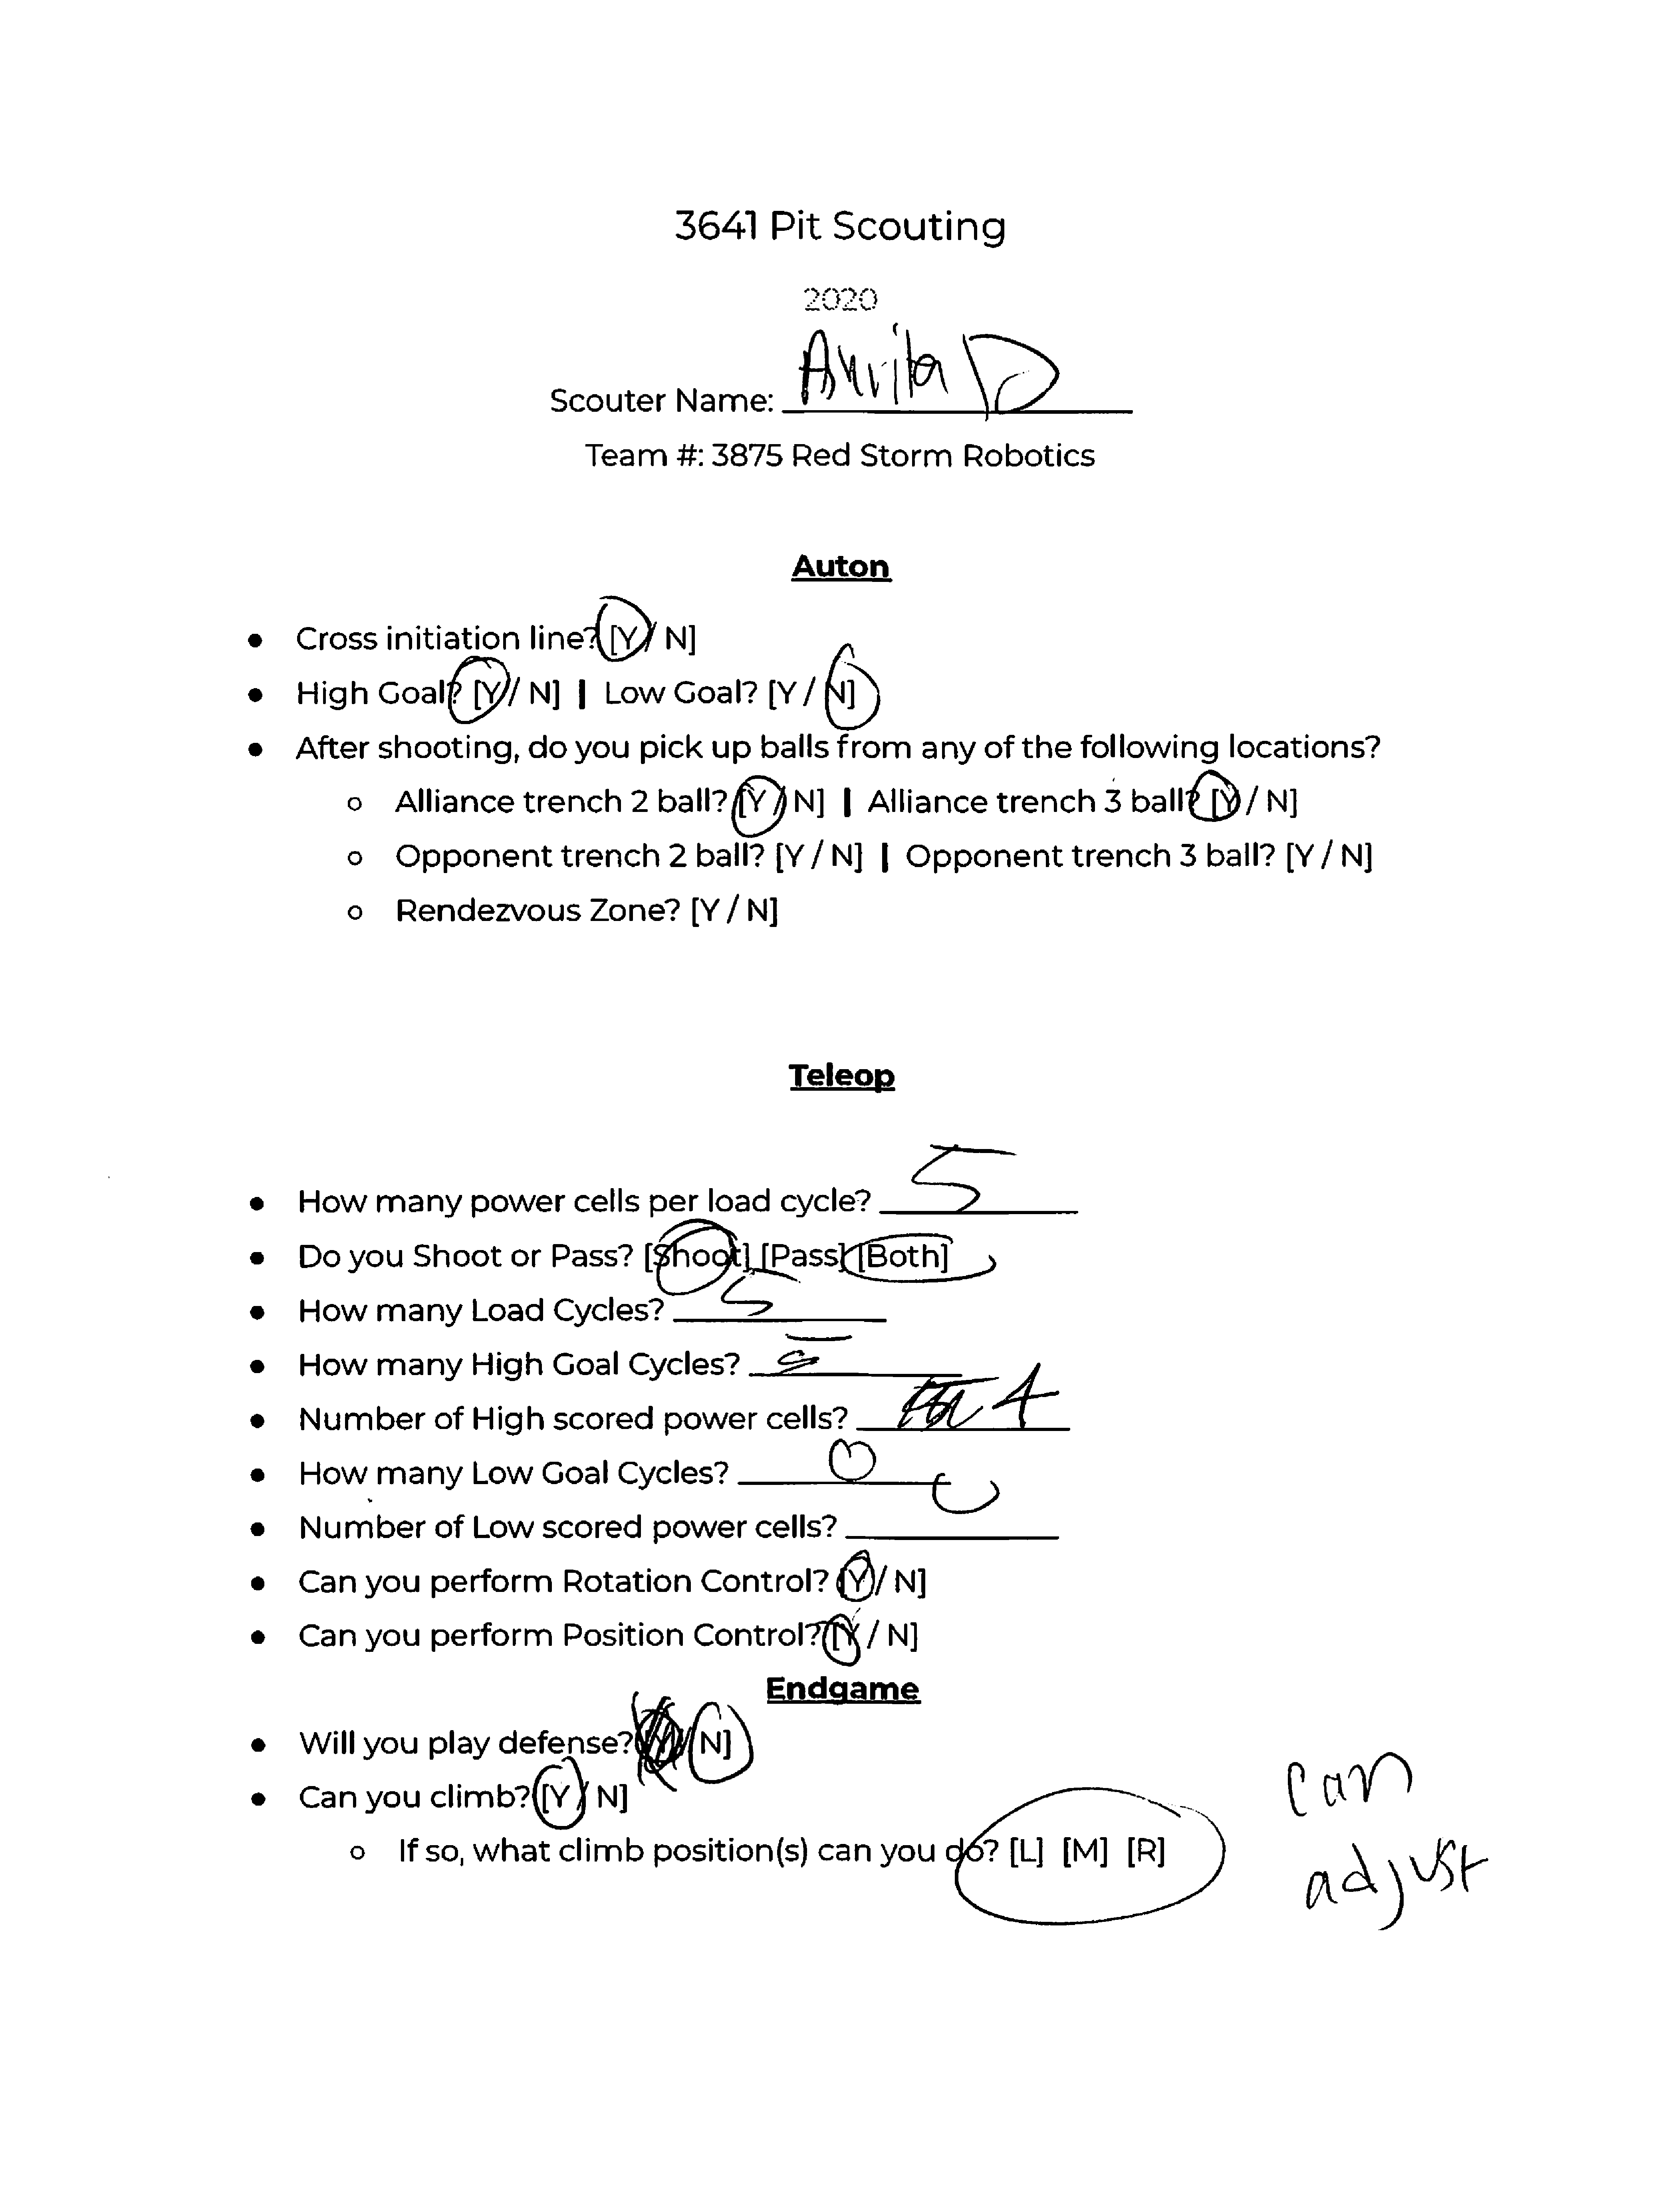 3641 Pit Scouting
2020
Scouter Name: D
Team #: 3875 Red Storm Robotics
Auton
● Cross initiation line? [Y / N]
● High Goal? [Y / N] | Low Goal? [Y / N]
● After shooting, do you pick up balls from any of the following locations?
○ Alliance trench 2 ball? [Y / N] | Alliance trench 3 ball? [Y / N]
○ Opponent trench 2 ball? [Y / N] | Opponent trench 3 ball? [Y / N]
○ Rendezvous Zone? [Y / N]
Teleop
● How many power cells per load cycle? 5
● Do you Shoot or Pass? [Shoot] [Pass] [Both]
● How many Load Cycles? 5
● How many High Goal Cycles? 5
● Number of High scored power cells? 4
● How many Low Goal Cycles? 0
● Number of Low scored power cells? 
● Can you perform Rotation Control? [Y / N]
● Can you perform Position Control? [Y / N]
Endgame
● Will you play defense? [Y / N]
● Can you climb? [Y / N]
○ If so, what climb position(s) can you do? [L] [M] [R]
can
adjust